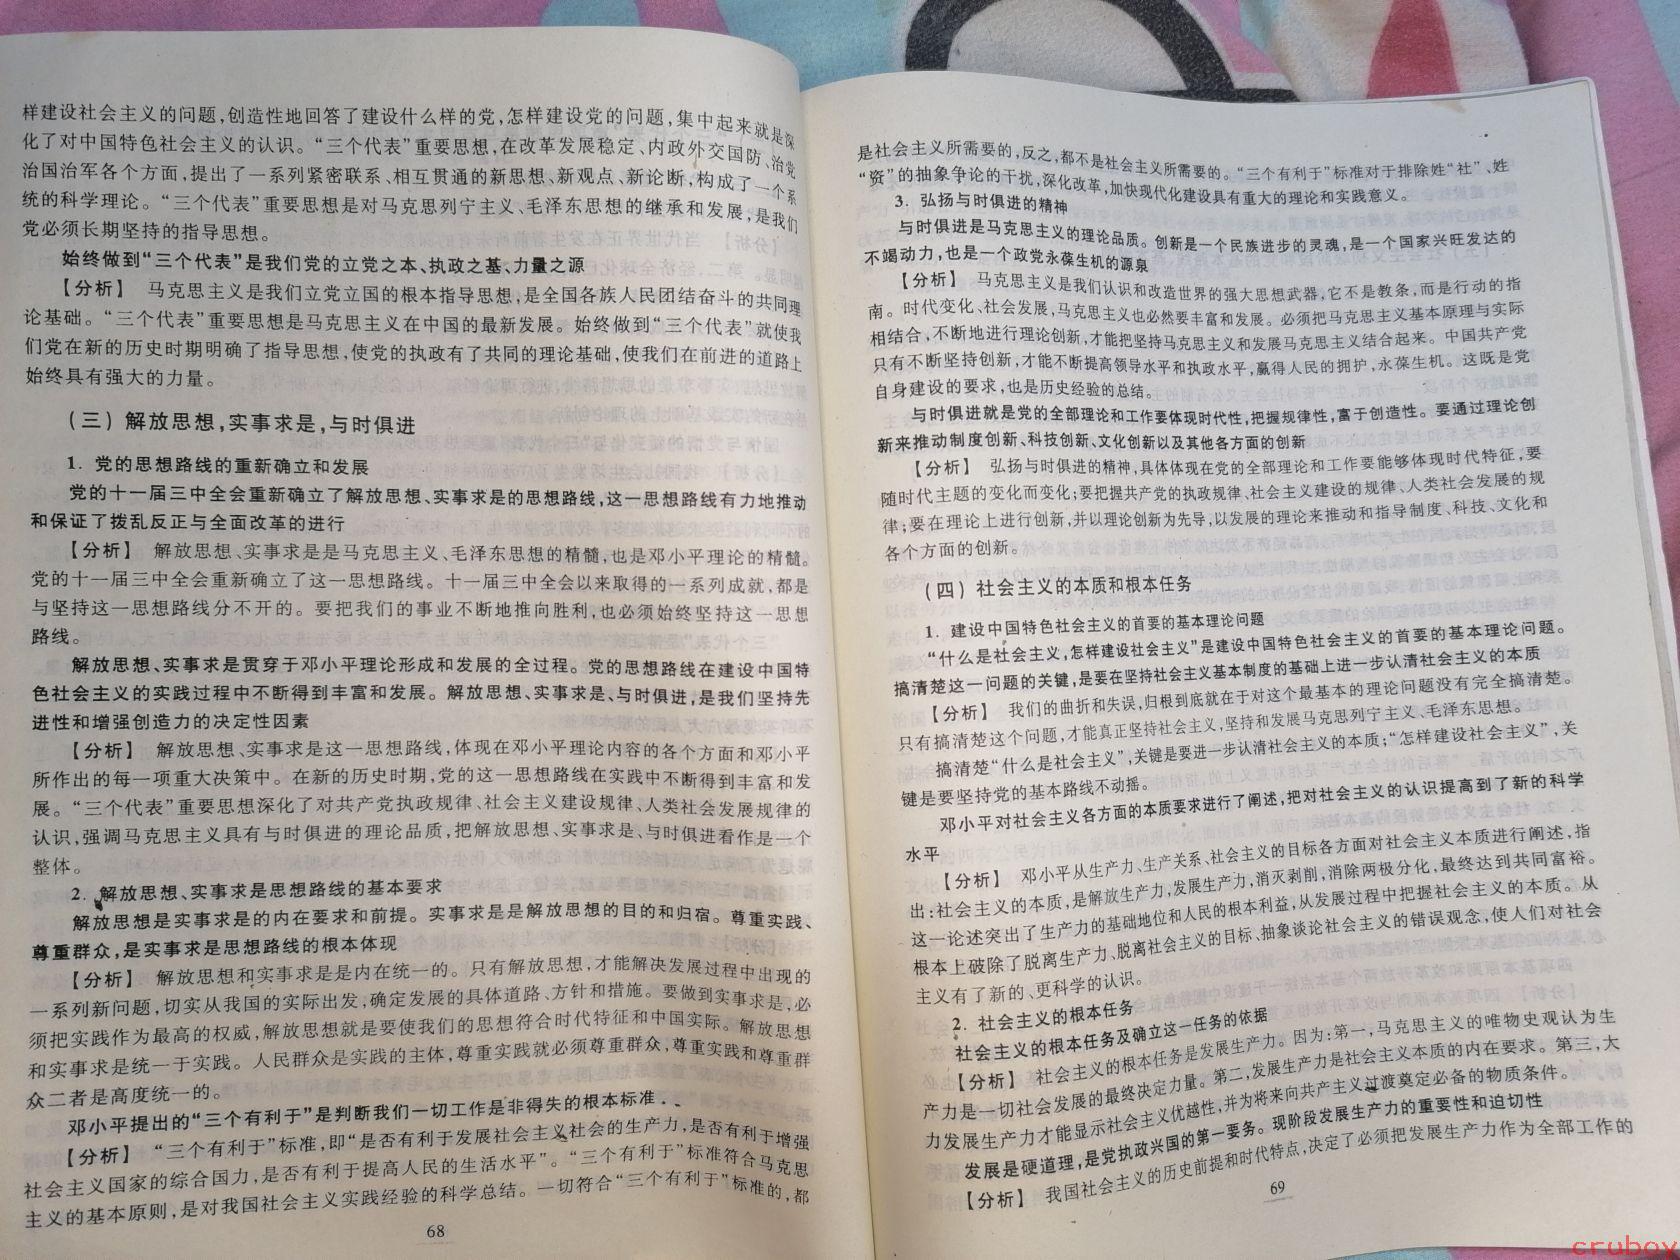 样建设社会主义的问题,创造性地回答了建设什么样的党,怎样建设党的问题,集中起来就是深
化了对中国特色社会主义的认识。“三个代表”重要思想,在改革发展稳定、内政外交国防、治党
治国治军各个方面,提出了一系列紧密联系、相互贯通的新思想、新观点、新论断,构成了一个系
统的科学理论。“三个代表”重要思想是对马克思列宁主义、毛泽东思想的继承和发展,是我们
党必须长期坚持的指导思想。
始终做到“三个代表”是我们党的立党之本、执政之基、力量之源
【分析】 马克思主义是我们立党立国的根本指导思想,是全国各族人民团结奋斗的共同理
论基础。“三个代表”重要思想是马克思主义在中国的最新发展。始终做到“三个代表”就使我
们党在新的历史时期明确了指导思想,使党的执政有了共同的理论基础,使我们在前进的道路上
始终具有强大的力量。
(三) 解放思想,实事求是,与时俱进
1. 党的思想路线的重新确立和发展
党的十一届三中全会重新确立了解放思想、实事求是的思想路线,这一思想路线有力地推动
和保证了拨乱反正与全面改革的进行
【分析】 解放思想、实事求是是马克思主义、毛泽东思想的精髓,也是邓小平理论的精髓。
党的十一届三中全会重新确立了这一思想路线。十一届三中全会以来取得的一系列成就,都是
与坚持这一思想路线分不开的。要把我们的事业不断地推向胜利,也必须始终坚持这一思想
路线。
解放思想、实事求是贯穿于邓小平理论形成和发展的全过程。党的思想路线在建设中国特
色社会主义的实践过程中不断得到丰富和发展。解放思想、实事求是、与时俱进,是我们坚持先
进性和增强创造力的决定性因素
【分析】 解放思想、实事求是这一思想路线,体现在邓小平理论内容的各个方面和邓小平
所作出的每一项重大决策中。在新的历史时期,党的这一思想路线在实践中不断得到丰富和发
展。“三个代表”重要思想深化了对共产党执政规律、社会主义建设规律、人类社会发展规律的
认识,强调马克思主义具有与时俱进的理论品质,把解放思想、实事求是、与时俱进看作是一个
整体。
2. 解放思想、实事求是思想路线的基本要求
解放思想是实事求是的内在要求和前提。实事求是是解放思想的目的和归宿。尊重实践、
尊重群众,是实事求是思想路线的根本体现
【分析】 解放思想和实事求是是内在统一的。只有解放思想,才能解决发展过程中出现的
一系列新问题,切实从我国的实际出发,确定发展的具体道路、方针和措施。要做到实事求是,必
须把实践作为最高的权威,解放思想就是要使我们的思想符合时代特征和中国实际。解放思想
和实事求是统一于实践。人民群众是实践的主体,尊重实践就必须尊重群众,尊重实践和尊重群
众二者是高度统一的。
邓小平提出的“三个有利于”是判断我们一切工作是非得失的根本标准
【分析】 “三个有利于”标准,即“是否有利于发展社会主义社会的生产力,是否有利于增强
社会主义国家的综合国力,是否有利于提高人民的生活水平”。“三个有利于”标准符合马克思
主义的基本原则,是对我国社会主义实践经验的科学总结。一切符合“三个有利于”标准的,都
68
是社会主义所需要的,反之,都不是社会主义所需要的。“三个有利于”标准对于排除姓“社”、姓
“资”的抽象争论的干扰,深化改革,加快现代化建设具有重大的理论和实践意义。
3. 弘扬与时俱进的精神
与时俱进是马克思主义的理论品质。创新是一个民族进步的灵魂,是一个国家兴旺发达的
不竭动力,也是一个政党永葆生机的源泉
【分析】 马克思主义是我们认识和改造世界的强大思想武器,它不是教条,而是行动的指
南。时代变化、社会发展,马克思主义也必然要丰富和发展。必须把马克思主义基本原理与实际
相结合,不断地进行理论创新,才能把坚持马克思主义和发展马克思主义结合起来。中国共产党
只有不断坚持创新,才能不断提高领导水平和执政水平,赢得人民的拥护,永葆生机。这既是党
自身建设的要求,也是历史经验的总结。
与时俱进就是党的全部理论和工作要体现时代性,把握规律性,富于创造性。要通过理论创
新来推动制度创新、科技创新、文化创新以及其他各方面的创新
【分析】 弘扬与时俱进的精神,具体体现在党的全部理论和工作要能够体现时代特征,要
随时代主题的变化而变化;要把握共产党的执政规律、社会主义建设的规律、人类社会发展的规
律;要在理论上进行创新,并以理论创新为先导,以发展的理论来推动和指导制度、科技、文化和
各个方面的创新。
(四) 社会主义的本质和根本任务
1. 建设中国特色社会主义的首要的基本理论问题
“什么是社会主义,怎样建设社会主义”是建设中国特色社会主义的首要的基本理论问题。
搞清楚这一问题的关键,是要在坚持社会主义基本制度的基础上进一步认清社会主义的本质
【分析】 我们的曲折和失误,归根到底就在于对这个最基本的理论问题没有完全搞清楚。
只有搞清楚这个问题,才能真正坚持社会主义,坚持和发展马克思列宁主义、毛泽东思想。
搞清楚“什么是社会主义”,关键是要进一步认清社会主义的本质;“怎样建设社会主义”,关
键是要坚持党的基本路线不动摇。
邓小平对社会主义各方面的本质要求进行了阐述,把对社会主义的认识提高到了新的科学
水平
【分析】 邓小平从生产力、生产关系、社会主义的目标各方面对社会主义本质进行阐述,指
出:社会主义的本质,是解放生产力,发展生产力,消灭剥削,消除两极分化,最终达到共同富裕。
这一论述突出了生产力的基础地位和人民的根本利益,从发展过程中把握社会主义的本质。从
根本上破除了脱离生产力、脱离社会主义的目标、抽象谈论社会主义的错误观念,使人们对社会
主义有了新的、更科学的认识。
2. 社会主义的根本任务
社会主义的根本任务及确立这一任务的依据
【分析】 社会主义的根本任务是发展生产力。因为:第一,马克思主义的唯物史观认为生
产力是一切社会发展的最终决定力量。第二,发展生产力是社会主义本质的内在要求。第三,大
力发展生产力才能显示社会主义优越性,并为将来向共产主义过渡奠定必备的物质条件。
发展是硬道理,是党执政兴国的第一要务。现阶段发展生产力的重要性和迫切性
【分析】 我国社会主义的历史前提和时代特点,决定了必须把发展生产力作为全部工作的
69
cruboy